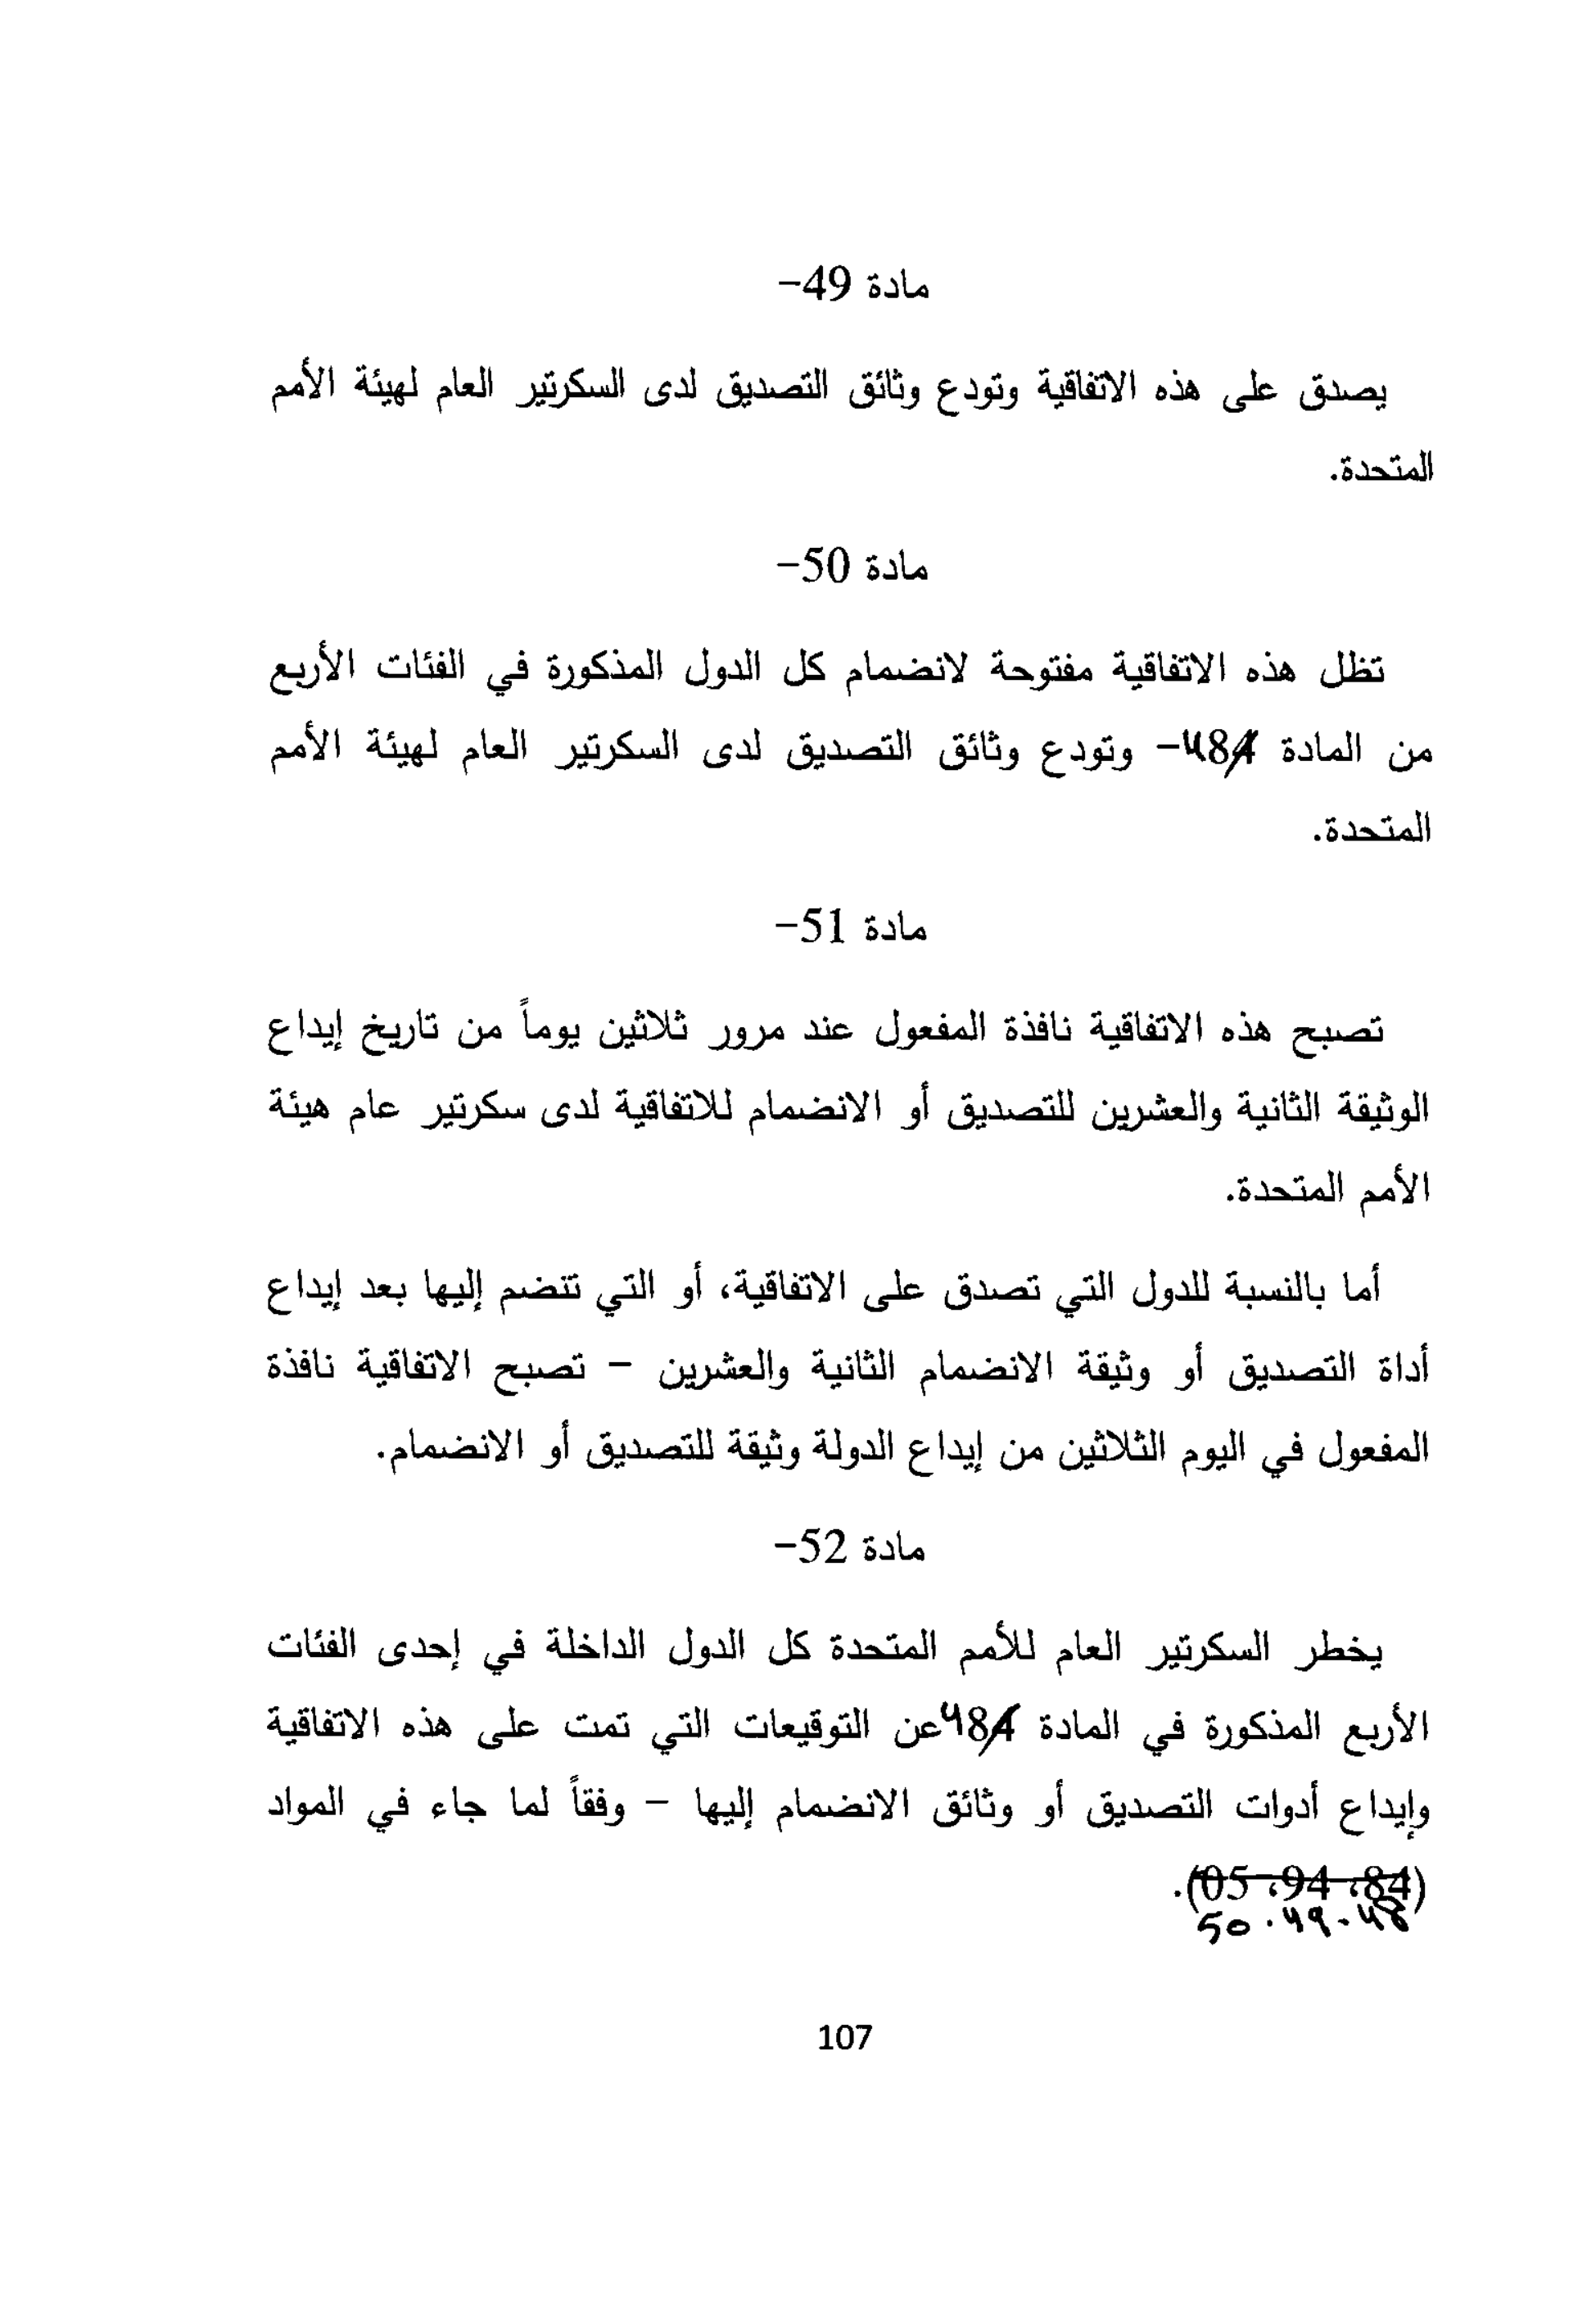 مادة 49-
يصدق على هذه الاتفاقية وتودع وثائق التصديق لدى السكرتير العام لهيئة الأمم
المتحدة.
مادة 50-
تظل هذه الاتفاقية مفتوحة لانضمام كل الدول المذكورة في الفئات الأربع
من المادة 48- وتودع وثائق التصديق لدى السكرتير العام لهيئة الأمم
المتحدة.
مادة 51-
تصبح هذه الاتفاقية نافذة المفعول عند مرور ثلاثين يوماً من تاريخ إيداع
الوثيقة الثانية والعشرين للتصديق أو الانضمام للاتفاقية لدى سكرتير عام هيئة
الأمم المتحدة.
أما بالنسبة للدول التي تصدق على الاتفاقية، أو التي تنضم إليها بعد إيداع
أداة التصديق أو وثيقة الانضمام الثانية والعشرين – تصبح الاتفاقية نافذة
المفعول في اليوم الثلاثين من إيداع الدولة وثيقة للتصديق أو الانضمام.
مادة 52-
يخطر السكرتير العام للأمم المتحدة كل الدول الداخلة في إحدى الفئات
الأربع المذكورة في المادة 48 عن التوقيعات التي تمت على هذه الاتفاقية
وإيداع أدوات التصديق أو وثائق الانضمام إليها – وفقاً لما جاء في المواد
(84، 94، 05).
48 - 49 . 50
107